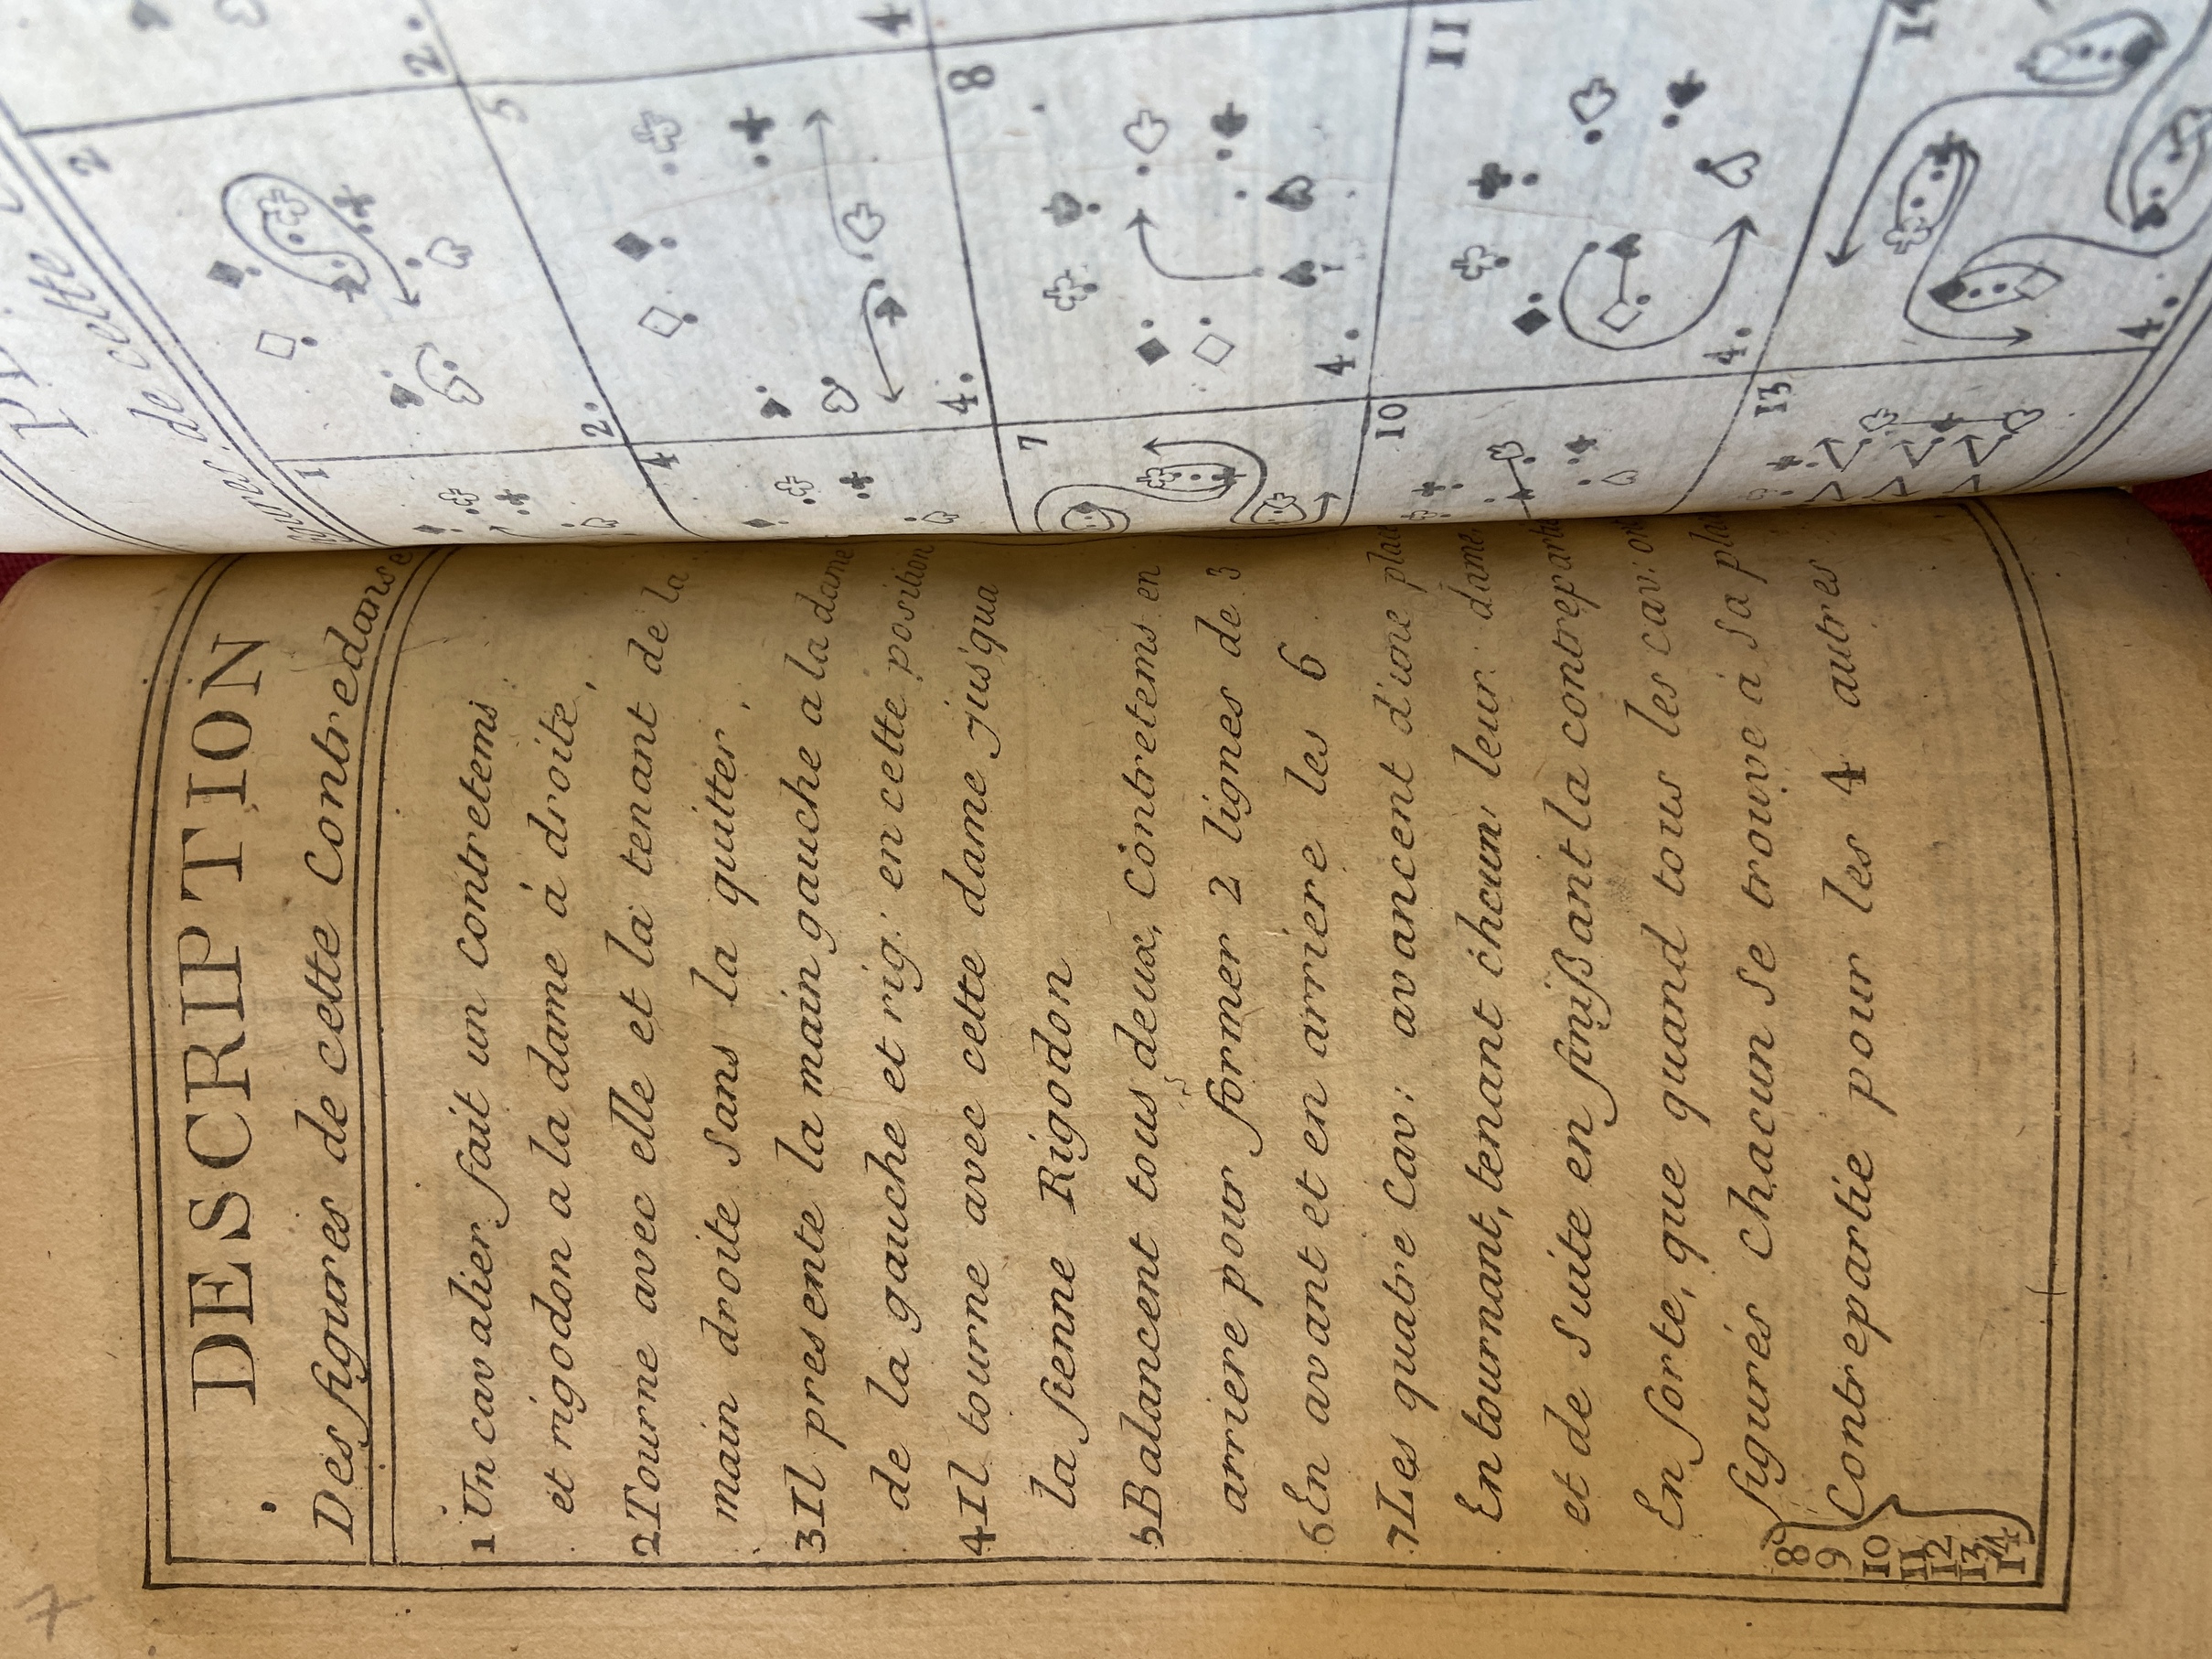 7
DESCRIPTION
Des figures de cette Contredanse
1 Un cavalier fait un contretems
et rigodon a la dame à droite,
2 Tourne avec elle et la tenant de la
main droite sans la quitter,
3 Il presente la main gauche a la dame
de la gauche et rig. en cette position
4 Il tourne avec cette dame jus'qua
la sienne Rigodon
5 Balancent tous deux, Contretems en
arriere pour former 2 lignes de 3
6 En avant et en arriere les 6
7 Les quatre Cav: avancent d'une
En tournant, tenant chcun leur dame
et de Suite en finißant la contrepartie
En sorte, que quand tous les cav: ont
figurés Chacun se trouve à sa
8 9 10 11 12 13 14 Contrepartie pour les 4 autres
de cette
1
2.
2
2.
4
4.
5
4
7
4.
8
10
4.
11
13
4.
14